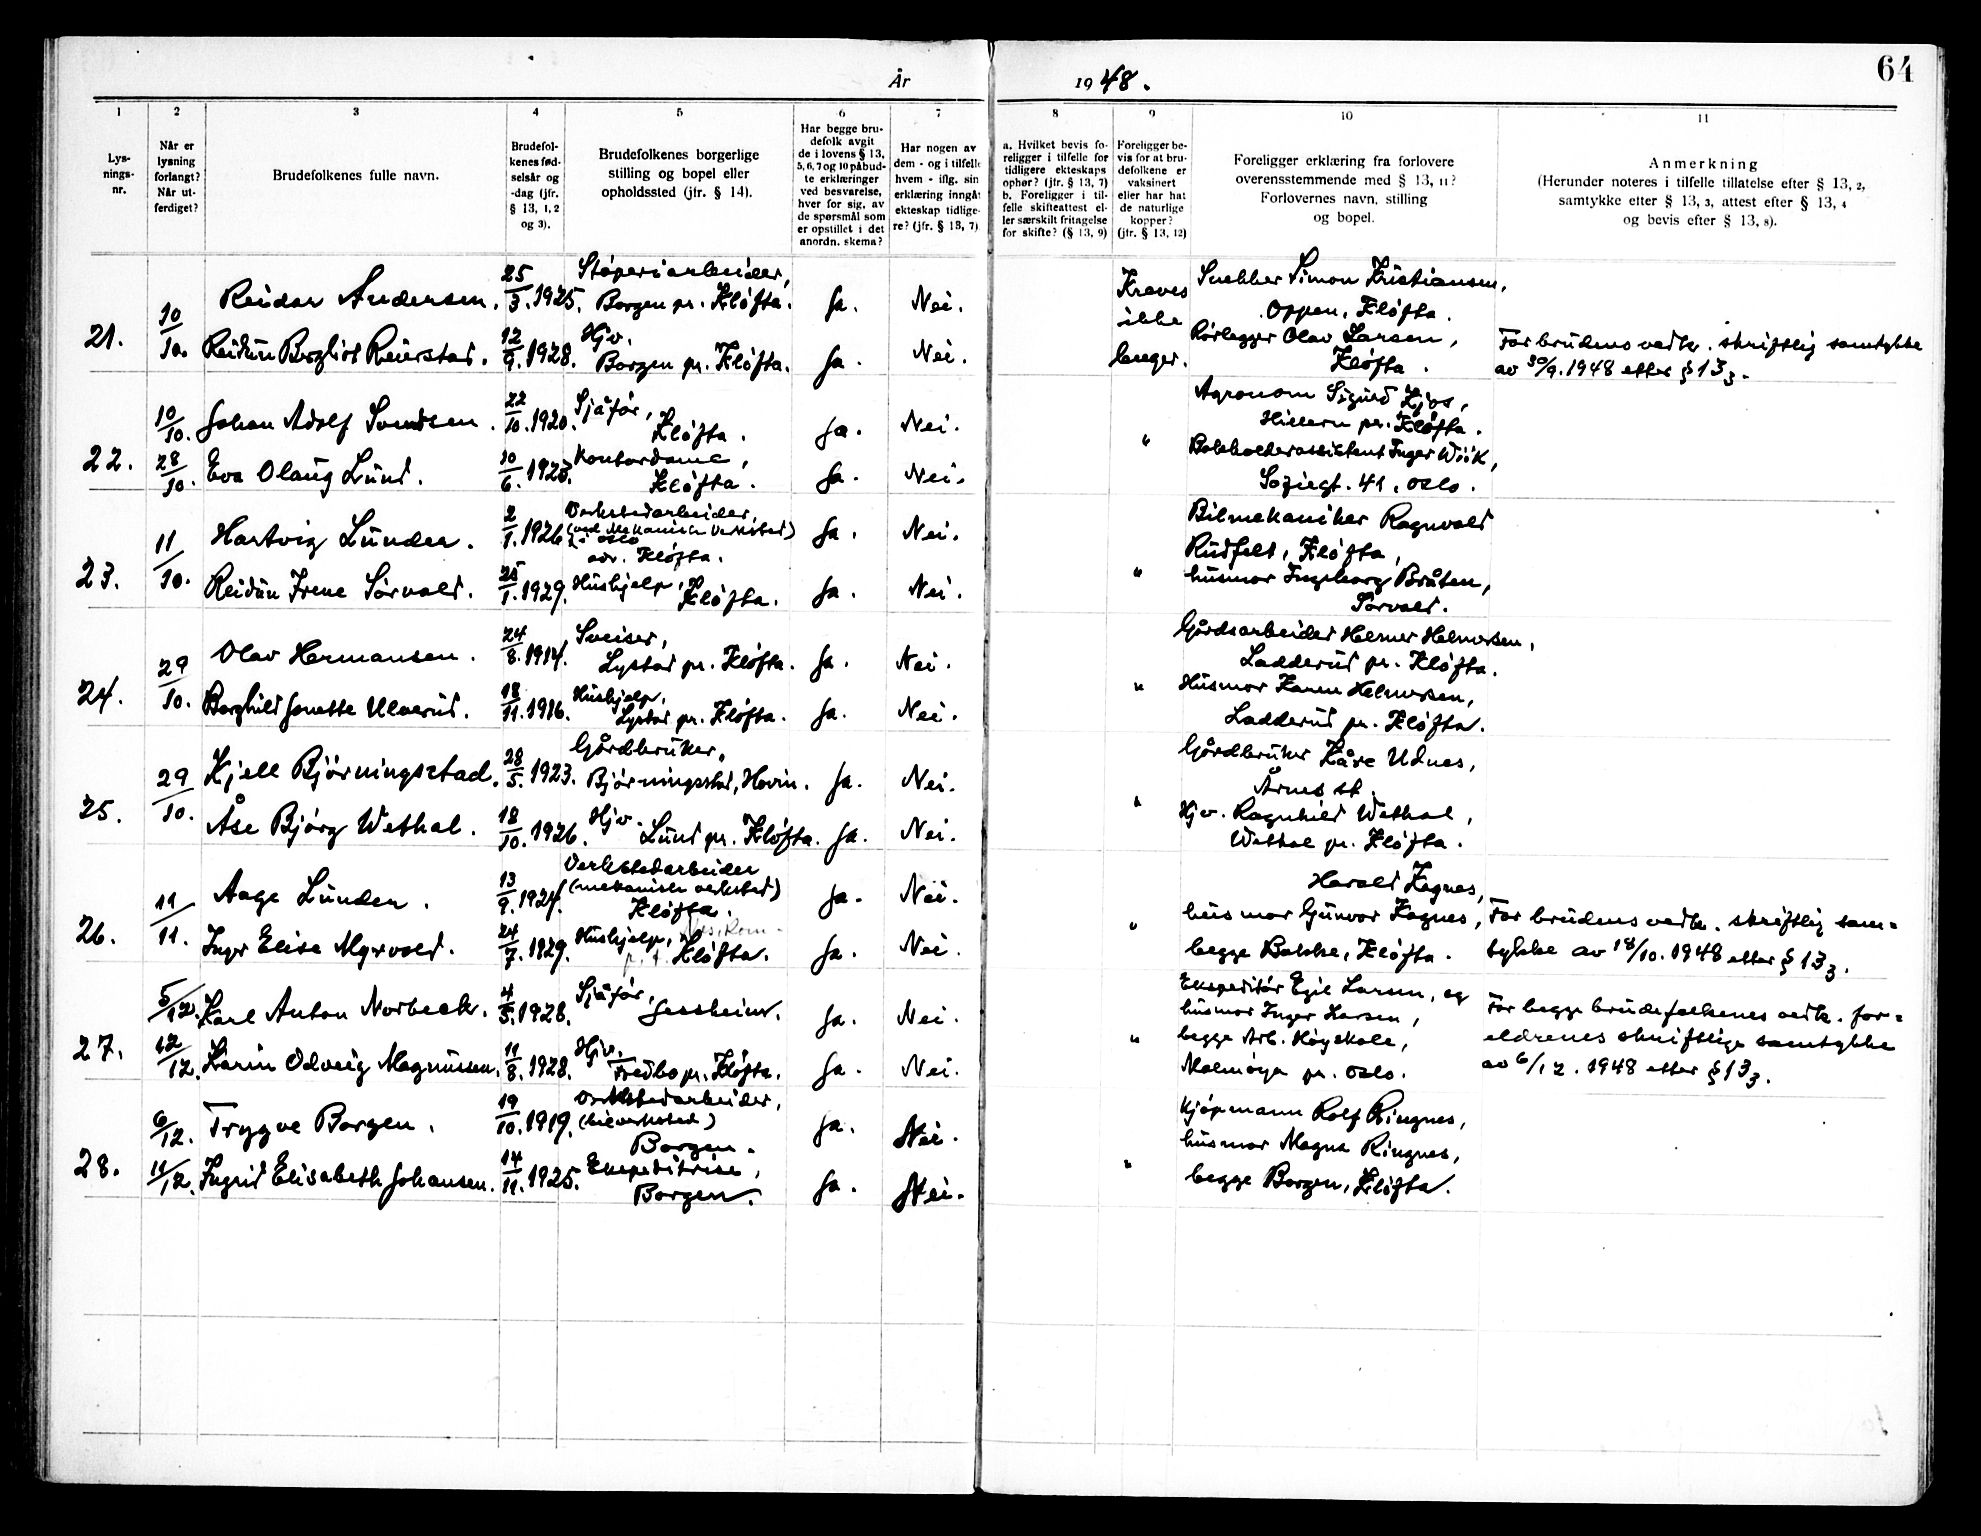 64
År 1948.
1 2 3 4 5 6 7 8 9 10 11
Lys-
nings-
nr.
Når er
lysning
forlangt?
Når ut-
ferdiget?
Brudefolkenes fulle navn.
Brudefol-
kenes fød-
selsår og
-dag (jfr.
§ 13, 1, 2
og 3).
Brudefolkenes borgerlige
stilling og bopel eller
opholdssted (jfr. § 14).
Har begge bru-
defolk avgit
de i lovens § 13,
5, 6, 7 og 10 påbud-
te erklæringer
ved besvarelse,
hver for sig, av
de spørsmål som
er opstillet i det
anordn. skema?
Har nogen av
dem - og i tilfelle
hvem - iflg. sin
erklæring inngåt
ekteskap tidlige-
re? (jfr. § 13, 7)
a. Hvilket bevis fo-
religger i tilfelle for
tidligere ekteskaps
ophør? (jfr. § 13, 7)
b. Foreligger i til-
felle skifteattest el-
ler særskilt fritagelse
for skifte? (§ 13, 9)
Foreligger be-
vis for at bru-
defolkene er
vaksinert
eller har hat
de naturlige
kopper?
(jfr. § 13, 12)
Foreligger erklæring fra forlovere
overensstemmende med § 13, 11?
Forlovernes navn, stilling
og bopel.
Anmerkning
(Herunder noteres i tilfelle tillatelse efter § 13, 2,
samtykke efter § 13, 3, attest efter § 13, 4
og bevis efter § 13, 8).
21. 10/10.
Reidar Andersen. 25/3. 1925. Støperiarbeider,
Borgen pr. Kløfta. Ja. Nei.
Reidun Borgliot Reierstad. 12/9. 1928. Hjv.
Borgen pr. Kløfta. Ja. Nei.
Kreves
ikke
lenger.
Snekker Simon Kristiansen,
Oppen, Kløfta.
Rørlegger Olav Larsen,
Kløfta.
For brudens vedk. skriftlig samtykke
av 30/9. 1948 etter § 13 3.
22. 10/10. 28/10.
Johan Adolf Svendsen. 22/10. 1920. Sjåfør,
Kløfta. Ja. Nei.
Eva Olaug Lund. 10/6. 1925. Kontordame,
Kløfta. Ja. Nei.
"
Agronom Sigurd Ljos,
Hillern pr. Kløfta.
Bokholderassistent Inger Wiik,
Sogiegt. 41, Oslo.
23. 11/10.
Hartvig Lunder. 2/1. 1926. Verkstedarbeider,
(ved Mekanisk Verksted)
i Oslo
adr. Kløfta. Ja. Nei.
Reidun Irene Sørvald. 25/1. 1929. Hushjelp,
Kløfta. Ja. Nei.
"
Bilmekaniker Ragnvald
Rudfelt, Kløfta,
husmor Ingeborg Bråten,
Sørvald.
24. 29/10.
Olav Hermansen. 24/8. 1914. Sveiser,
Lystad pr. Kløfta. Ja. Nei.
Borghild Jonette Ulverud. 18/11. 1916. Hushjelp,
Lystad pr. Kløfta. Ja. Nei.
"
Gårdsarbeider Helmer Helmersen,
Ladderud pr. Kløfta.
Husmor Karen Helmersen,
Ladderud pr. Kløfta.
25. 29/10.
Kjell Bjørningstad. 28/5. 1923. Gårdbruker,
Bjørningstad, Hovin. Ja. Nei.
Åse Bjørg Wethal. 18/10. 1926. Hjv.
Lund pr. Kløfta. Ja. Nei.
"
Gårdbruker Kåre Udnes,
Årnes st.
Hjv. Ragnhild Wethal,
Wethal pr. Kløfta.
26. 11/11.
Aage Lunder. 13/9. 1924. Verkstedarbeider
(mekanisk verksted)
Kløfta. Ja. Nei.
Inger Elise Myrvold. 24/7. 1929. Hushjelp,
Kløfta. Ja. Nei.
"
Harald Kagnes,
husmor Gunvor Kagnes,
begge Bakke, Kløfta.
For brudens vedk. skriftlig sam=
tykke av 18/10. 1948 etter § 13 3.
27. 5/12. 12/12.
Karl Anton Norbeck. 4/5. 1928. Sjåfør,
Jessheim. Ja. Nei.
Karin Odveig Magnussen. 11/8. 1928. Hjv.
Fredbo pr. Kløfta. Ja. Nei.
"
Ekspeditør Egil Larsen, og
husmor Inger Larsen,
begge Arb. Høyskole,
Malmøya pr. Oslo.
For begge brudefolkenes vedk. for=
eldrenes skriftlige samtykke
av 6/12. 1948 etter § 13 3.
28. 6/12. 11/12.
Trygve Borgen. 19/10. 1919. Verkstedarbeider,
(bilverksted)
Borgen. Ja. Nei.
Ingrid Elisabeth Johansen. 14/11. 1925. Ekspeditrise,
Borgen. Ja. Nei.
"
Kjøpmann Rolf Ringnes,
husmor Magna Ringnes,
begge Borgen, Kløfta.